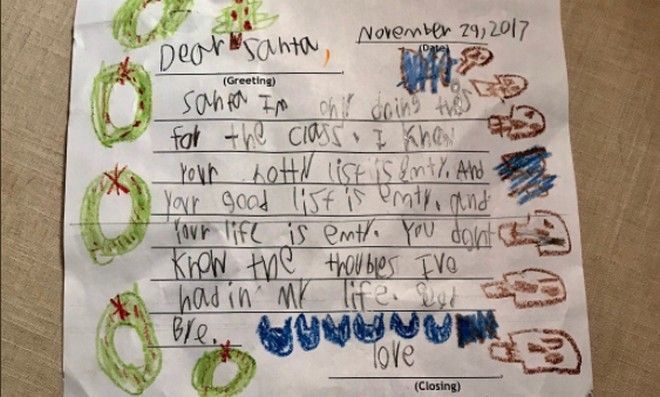 November 29, 2017
(Date)
Dear Santa,
(Greeting)
Santa Im only doing this
for the class. I know
your notty list is emty. And
your good list is emty. and
Your life is emty. You dont
know the thoubles Ive
had in my life. Good
Bye.
love
(Closing)